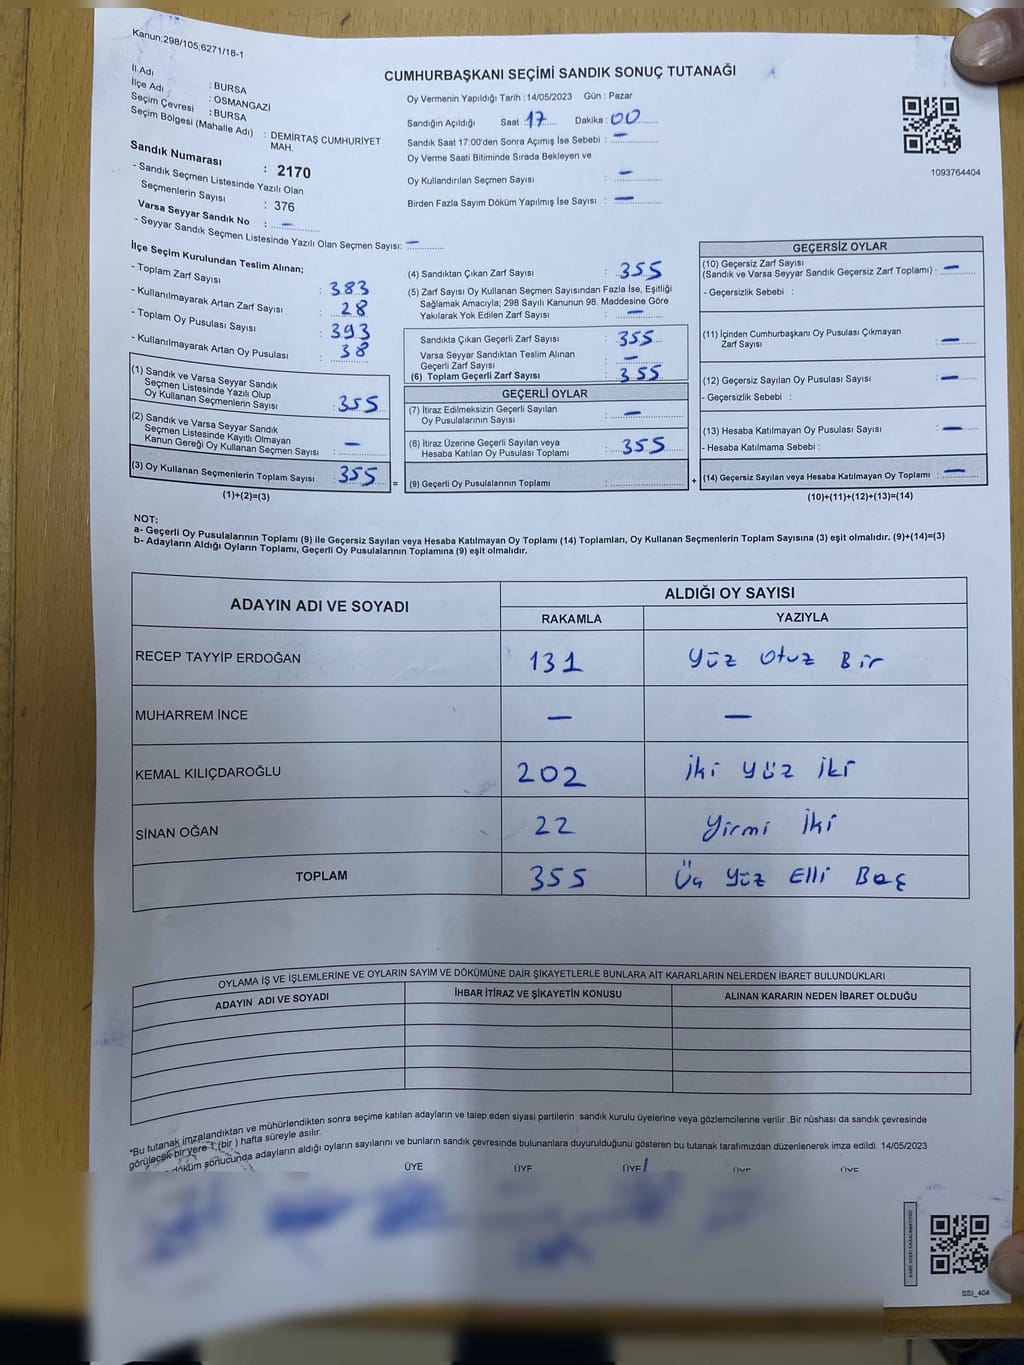 Kanun;298/105;6271/18-1
CUMHURBAŞKANI SEÇİMİ SANDIK SONUÇ TUTANAĞI
İl Adı : BURSA
İlçe Adı : OSMANGAZİ
Seçim Çevresi : BURSA
Seçim Bölgesi (Mahalle Adı) : DEMİRTAŞ CUMHURİYET
MAH.
Sandık Numarası : 2170
- Sandık Seçmen Listesinde Yazılı Olan
Seçmenlerin Sayısı : 376
Varsa Seyyar Sandık No : —
- Seyyar Sandık Seçmen Listesinde Yazılı Olan Seçmen Sayısı: —
Oy Vermenin Yapıldığı Tarih : 14/05/2023 Gün : Pazar
Sandığın Açıldığı Saat 17 Dakika : 00
Sandık Saat 17:00'den Sonra Açımış İse Sebebi : —
Oy Verme Saati Bitiminde Sırada Bekleyen ve
Oy Kullandırılan Seçmen Sayısı : —
Birden Fazla Sayım Döküm Yapılmış İse Sayısı : —
1093764404
İlçe Seçim Kurulundan Teslim Alınan;
- Toplam Zarf Sayısı : 383
- Kullanılmayarak Artan Zarf Sayısı : 28
- Toplam Oy Pusulası Sayısı : 393
- Kullanılmayarak Artan Oy Pusulası : 38
(1) Sandık ve Varsa Seyyar Sandık
Seçmen Listesinde Yazılı Olup
Oy Kullanan Seçmenlerin Sayısı : 355
(2) Sandık ve Varsa Seyyar Sandık
Seçmen Listesinde Kayıtlı Olmayan
Kanun Gereği Oy Kullanan Seçmen Sayısı : —
(3) Oy Kullanan Seçmenlerin Toplam Sayısı : 355
(1)+(2)=(3)
=
(4) Sandıktan Çıkan Zarf Sayısı : 355
(5) Zarf Sayısı Oy Kullanan Seçmen Sayısından Fazla İse, Eşitliği
Sağlamak Amacıyla; 298 Sayılı Kanunun 98. Maddesine Göre
Yakılarak Yok Edilen Zarf Sayısı : —
Sandıkta Çıkan Geçerli Zarf Sayısı : 355
Varsa Seyyar Sandıktan Teslim Alınan
Geçerli Zarf Sayısı : —
(6) Toplam Geçerli Zarf Sayısı : 355
GEÇERLİ OYLAR
(7) İtiraz Edilmeksizin Geçerli Sayılan
Oy Pusulasının Sayısı : —
(8) İtiraz Üzerine Geçerli Sayılan veya
Hesaba Katılan Oy Pusulası Toplamı : 355
(9) Geçerli Oy Pusulalarının Toplamı :
+
GEÇERSİZ OYLAR
(10) Geçersiz Zarf Sayısı
(Sandık ve Varsa Seyyar Sandık Geçersiz Zarf Toplamı) : —
- Geçersizlik Sebebi :
(11) İçinden Cumhurbaşkanı Oy Pusulası Çıkmayan
Zarf Sayısı : —
(12) Geçersiz Sayılan Oy Pusulası Sayısı : —
- Geçersizlik Sebebi :
(13) Hesaba Katılmayan Oy Pusulası Sayısı : —
- Hesaba Katılmama Sebebi :
(14) Geçersiz Sayılan veya Hesaba Katılmayan Oy Toplamı : —
(10)+(11)+(12)+(13)=(14)
NOT:
a- Geçerli Oy Pusulalarının Toplamı (9) ile Geçersiz Sayılan veya Hesaba Katılmayan Oy Toplamı (14) Toplamları, Oy Kullanan Seçmenlerin Toplam Sayısına (3) eşit olmalıdır. (9)+(14)=(3)
b- Adayların Aldığı Oyların Toplamı, Geçerli Oy Pusulalarının Toplamına (9) eşit olmalıdır.
ADAYIN ADI VE SOYADI ALDIĞI OY SAYISI
RAKAMLA YAZIYLA
RECEP TAYYİP ERDOĞAN 131 Yüz Otuz Bir
MUHARREM İNCE — —
KEMAL KILIÇDAROĞLU 202 İki yüz iki
SİNAN OĞAN 22 Yirmi İki
TOPLAM 355 Üç Yüz Elli Beş
OYLAMA İŞ VE İŞLEMLERİNE VE OYLARIN SAYIM VE DÖKÜMÜNE DAİR ŞİKAYETLERLE BUNLARA AİT KARARLARIN NELERDEN İBARET BULUNDUKLARI
ADAYIN ADI VE SOYADI İHBAR İTİRAZ VE ŞİKAYETİN KONUSU ALINAN KARARIN NEDEN İBARET OLDUĞU
*Bu tutanak imzalandıktan ve mühürlendikten sonra seçime katılan adayların ve talep eden siyasi partilerin sandık kurulu üyelerine veya gözlemcilerine verilir .Bir nüshası da sandık çevresinde
görülecek bir yere 1 (bir ) hafta süreyle asılır.
döküm sonucunda adayların aldığı oyların sayılarını ve bunların sandık çevresinde bulunanlara duyurulduğunu gösteren bu tutanak tarafımızdan düzenlenerek imza edildi. 14/05/2023
ÜYE ÜYE ÜYE ÜYE ÜYE
KARE KODU KARALAMAYINIZ!
SSI_404